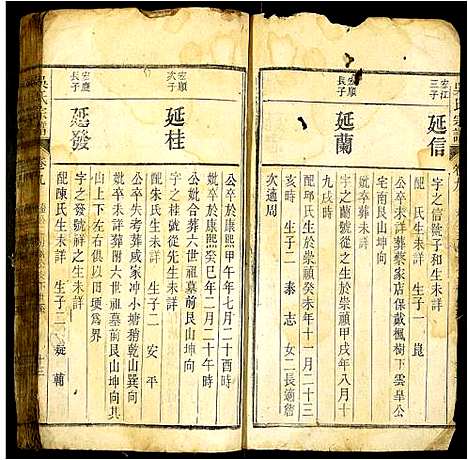 吳氏宗譜
卷九
宏江三子
延信
字之信號子和生未詳
配 氏生未詳 生子一 崑
公卒未詳葬蔡家店保戴楓樹下雲旱公
宅南艮山坤向
宏順長子
延蘭
字之蘭號從之生於崇禎甲戌年八月十
九戌時
妣卒葬未詳
配邱氏生於崇禎癸未年十一月二十三
亥時 生子二 泰 志 女二長適詹
次適周
公卒於康熙甲午年七月二十酉時
妣卒於康熙癸巳年二月二十午時
妣合葬六世祖墓前艮山坤向
次子
延桂
字之桂號從先生未詳
配朱氏生未詳 生子二 安 平
公卒失考葬戚家冲小塘稍乾山巽向
妣卒未詳葬附六世祖墓前艮山坤向其
山上下左右俱以田埂為界
宏慶長子
延發
字之發號祥之生未詳
配陳氏生未詳 生子二 疑 輔
吳氏宗譜
卷九